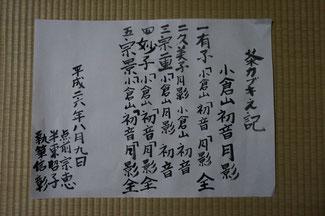 茶カブキ之記
小倉山 初音 月影
一 有子 「小倉山」 「初音」 「月影」 全
二 久美子 月影 小倉山 初音
三 宗重 「小倉山」 月影 初音
四 妙子 「小倉山」 「初音」 「月影」 全
五 宗景 「小倉山」 「初音」 「月影」 全
平成二六年八月九日
点前 宗恵
半東
執筆